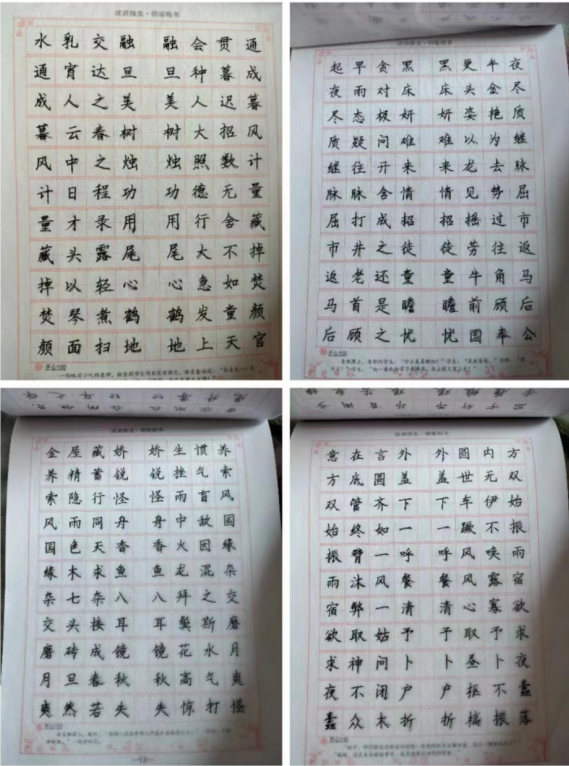 水乳交融 融会贯通
通宵达旦 旦种暮成
成人之美 美人迟暮
暮云春树 树大招风
风中之烛 烛照数计
计日程功 功德无量
量才录用 用行舍藏
藏头露尾 尾大不掉
掉以轻心 心急如焚
焚琴煮鹤 鹤发童颜
颜面扫地 地上天官
开心100
起早贪黑 黑更半夜
夜雨对床 床头金尽
尽态极妍 妍姿艳质
质疑问难 难以为继
继往开来 来龙去脉
脉脉含情 情见势屈
屈打成招 招摇过市
市井之徒 徒劳往返
返老还童 童牛角马
马首是瞻 瞻前顾后
后顾之忧 忧国奉公
开心100
金屋藏娇 娇生惯养
养精蓄锐 锐挫气索
索隐行怪 怪雨盲风
风雨同舟 舟中敌国
国色天香 香火因缘
缘木求鱼 鱼龙混杂
杂七杂八 八拜之交
交头接耳 耳鬓斯磨
磨砖成镜 镜花水月
月旦春秋 秋高气爽
爽然若失 失惊打怪
意在言外 外圆内方
方底圆盖 盖世无双
双管齐下 下车伊始
始终如一 一蹶不振
振臂一呼 呼风唤雨
雨沐风餐 餐风露宿
宿弊一清 清心寡欲
欲取姑予 予取予求
求神问卜 卜昼卜夜
夜不闭户 户枢不蠹
蠹众木折 折槁振落